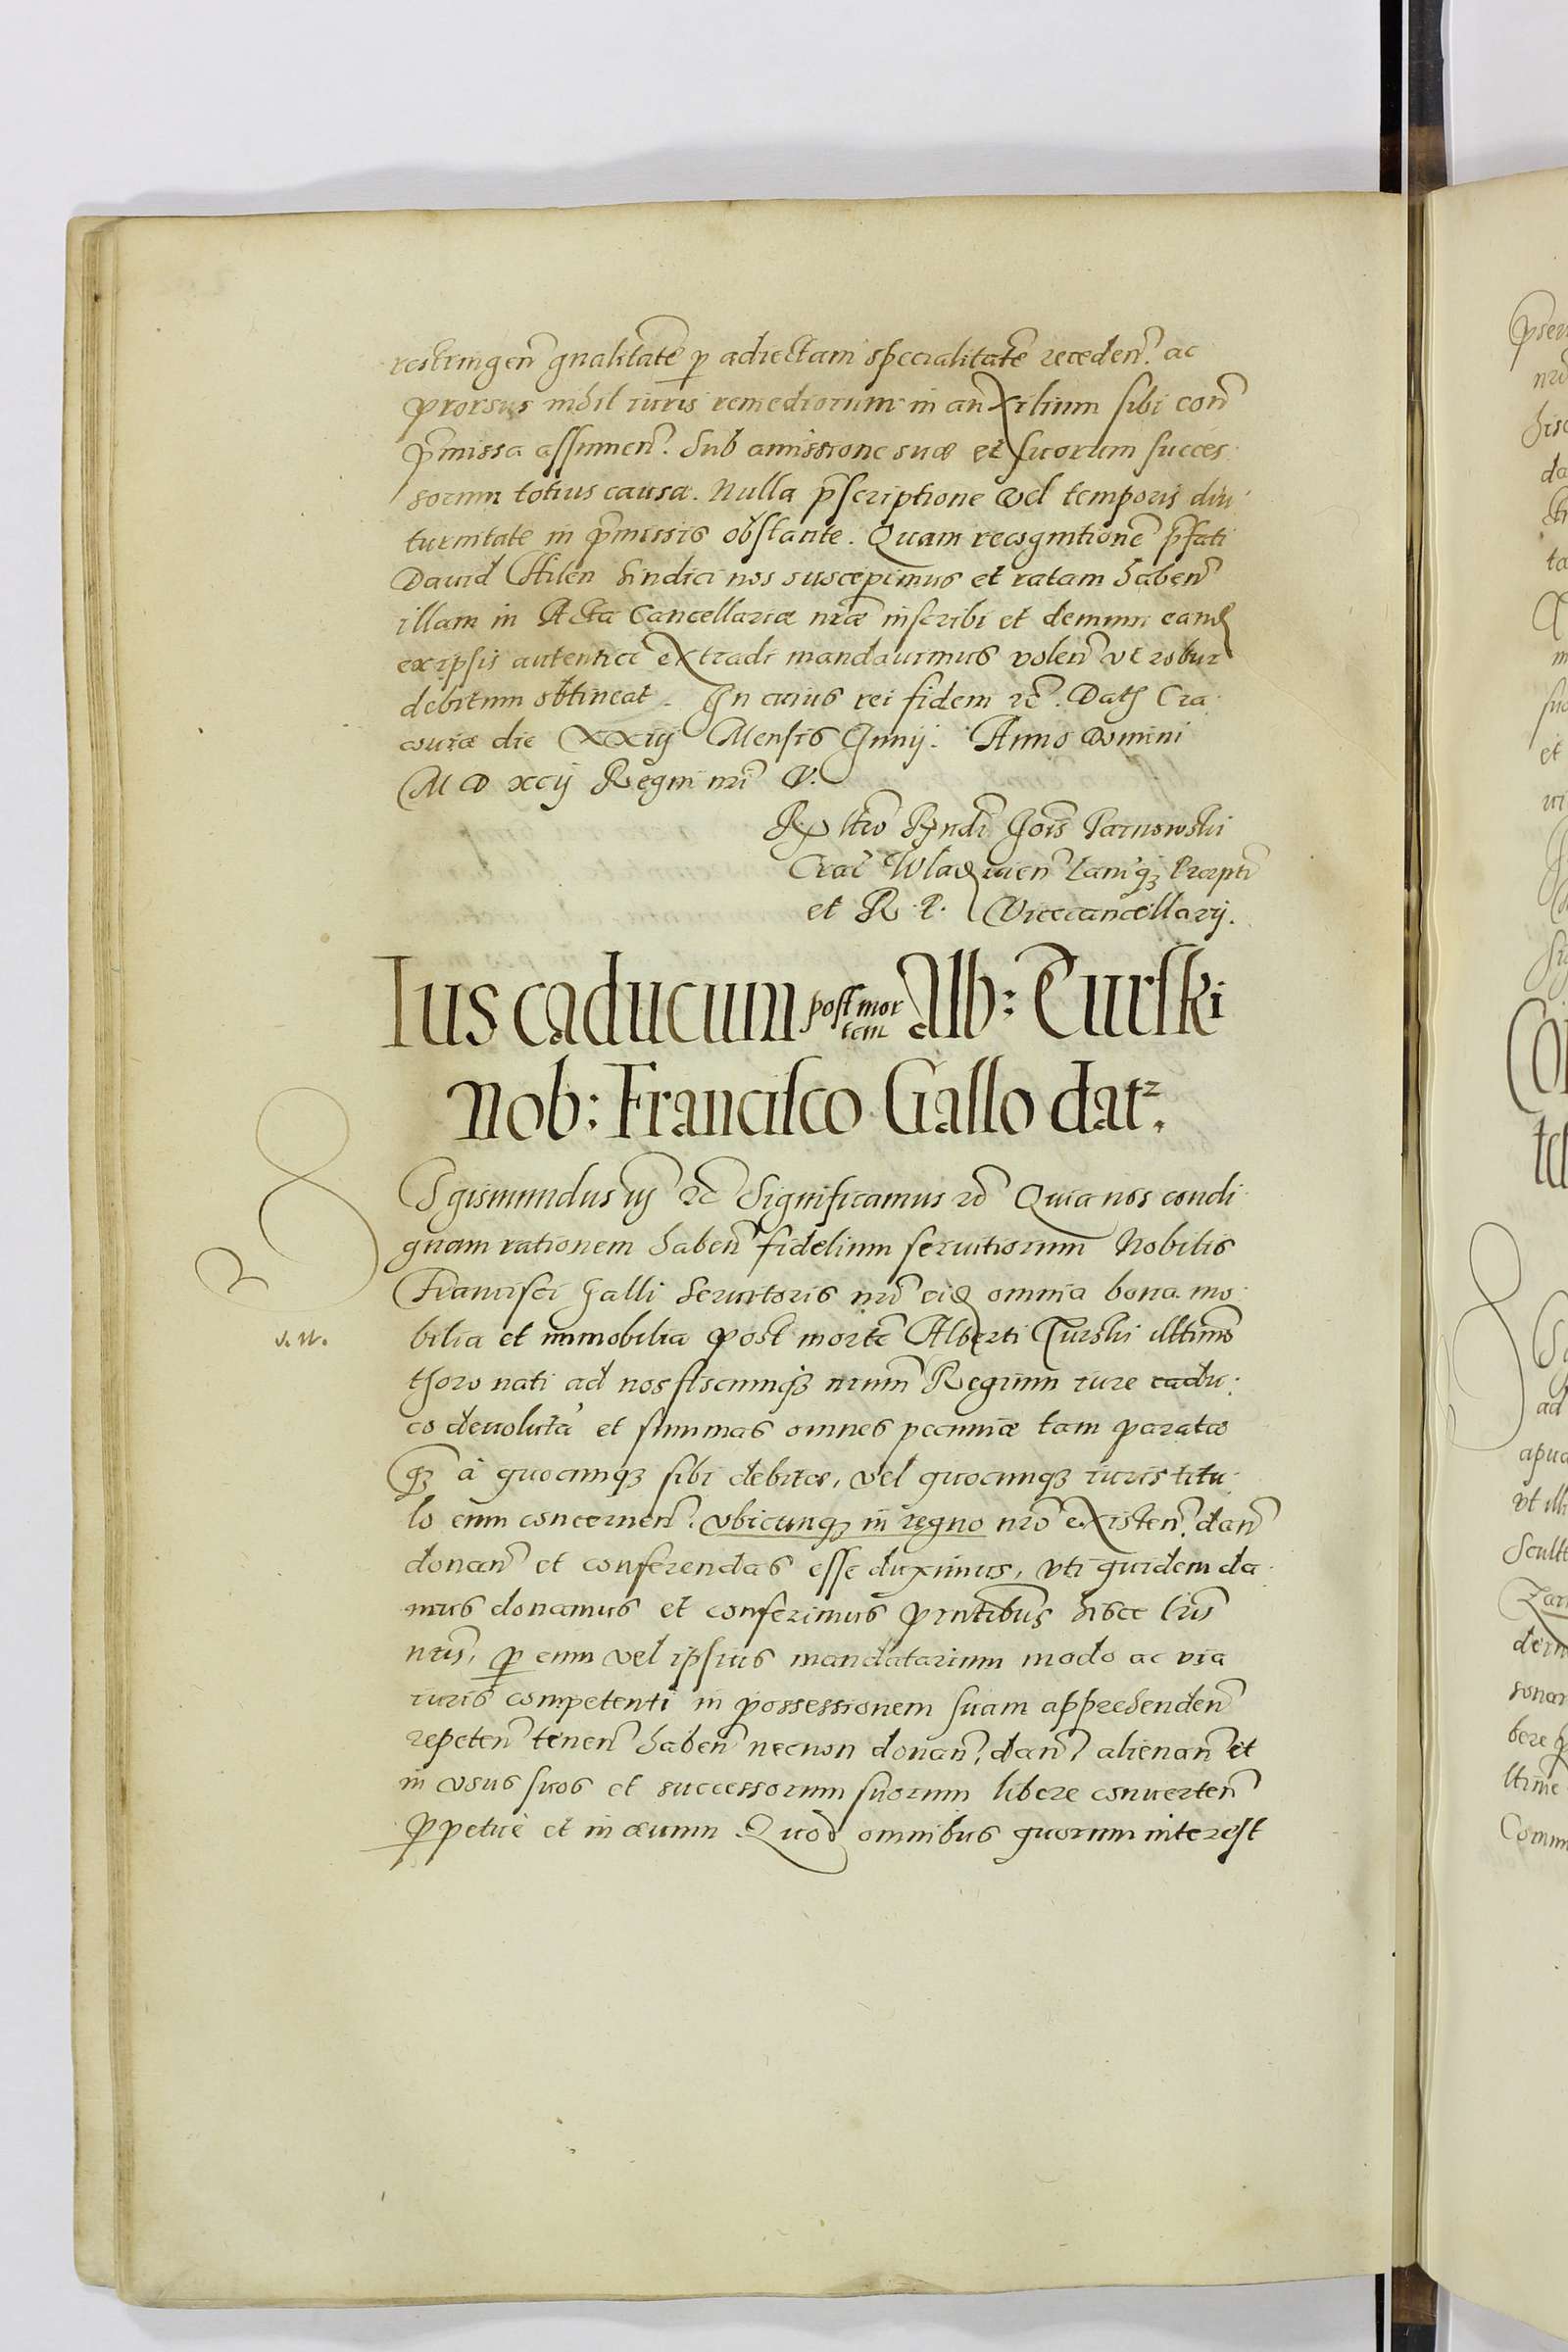 restringen̄ gn̄alitatē p adiectam specialitatē receden̄. ac
prorsus nihil iuris remediorum in auxilium sibi con̄
p̄missa assumen̄. Sub amissione suæ et suorum succes
sorum totius causæ. Nulla p̄scriptione vel temporis diu
turnitate in p̄missis obstante. Quam recognitionē p̄fati
Dauid Hilen Sindici nos suscepimus et ratam haben̄
illam in Acta Cancellariæ nr̄æ inscribi et demum eand
ex ipsis autentice extradi mandauimus volen̄ vt robur
debitum obtineat. In cuius rei fidem rc̄. Dat Cra
couiæ die XXiij Mensis Junij. Anno Domini
M D xcij Regni nr̄i V.
Rx̄ ltio Rn̄di Jois Tarnowski
Crac̄ Wladuien̄ Lanq̨ Præpti
et R. P. Vicecancellarij.
Ius caducum post mor
tem Alb: Turski
Nob: Francisco Gallo datz.
Sgismundus iij rc̄ Significamus rc̄ Quia nos condi
gnam rationem haben̄ fidelium seruitiorum Nobilis
Francisci Galli Seruitoris nr̄i eid omnia bona mo
J. W.
bilia et immobilia post mortē Alberti Turski illtimo
thoro nati ad nos fiscumq̨ nrum̄ Regium iure cadu
co deuoluta et summas omnes pecuniæ tam paratas
q̨ à quocunq̨ sibi debitas, vel quocunq̨ iuris titu
lo eum concernen̄. vbicunq̨ in regno nr̄o existen̄. dan̄
donan̄ et conferendas esse duximus, vti quidem da
mus donamus et conferimus pn̄tibus hisce lr̄is
nr̄is, p eum vel ipsius mandatarium modo ac via
iuris competenti in possessionem suam apprehenden̄
repeten̄ tenen̄ haben̄ necnon donan̄, dan̄, alienan̄ et
in vsus suos et successorum suorum libere conuerten̄
ppetuè et in æuum. Quod omnibus quorum interest